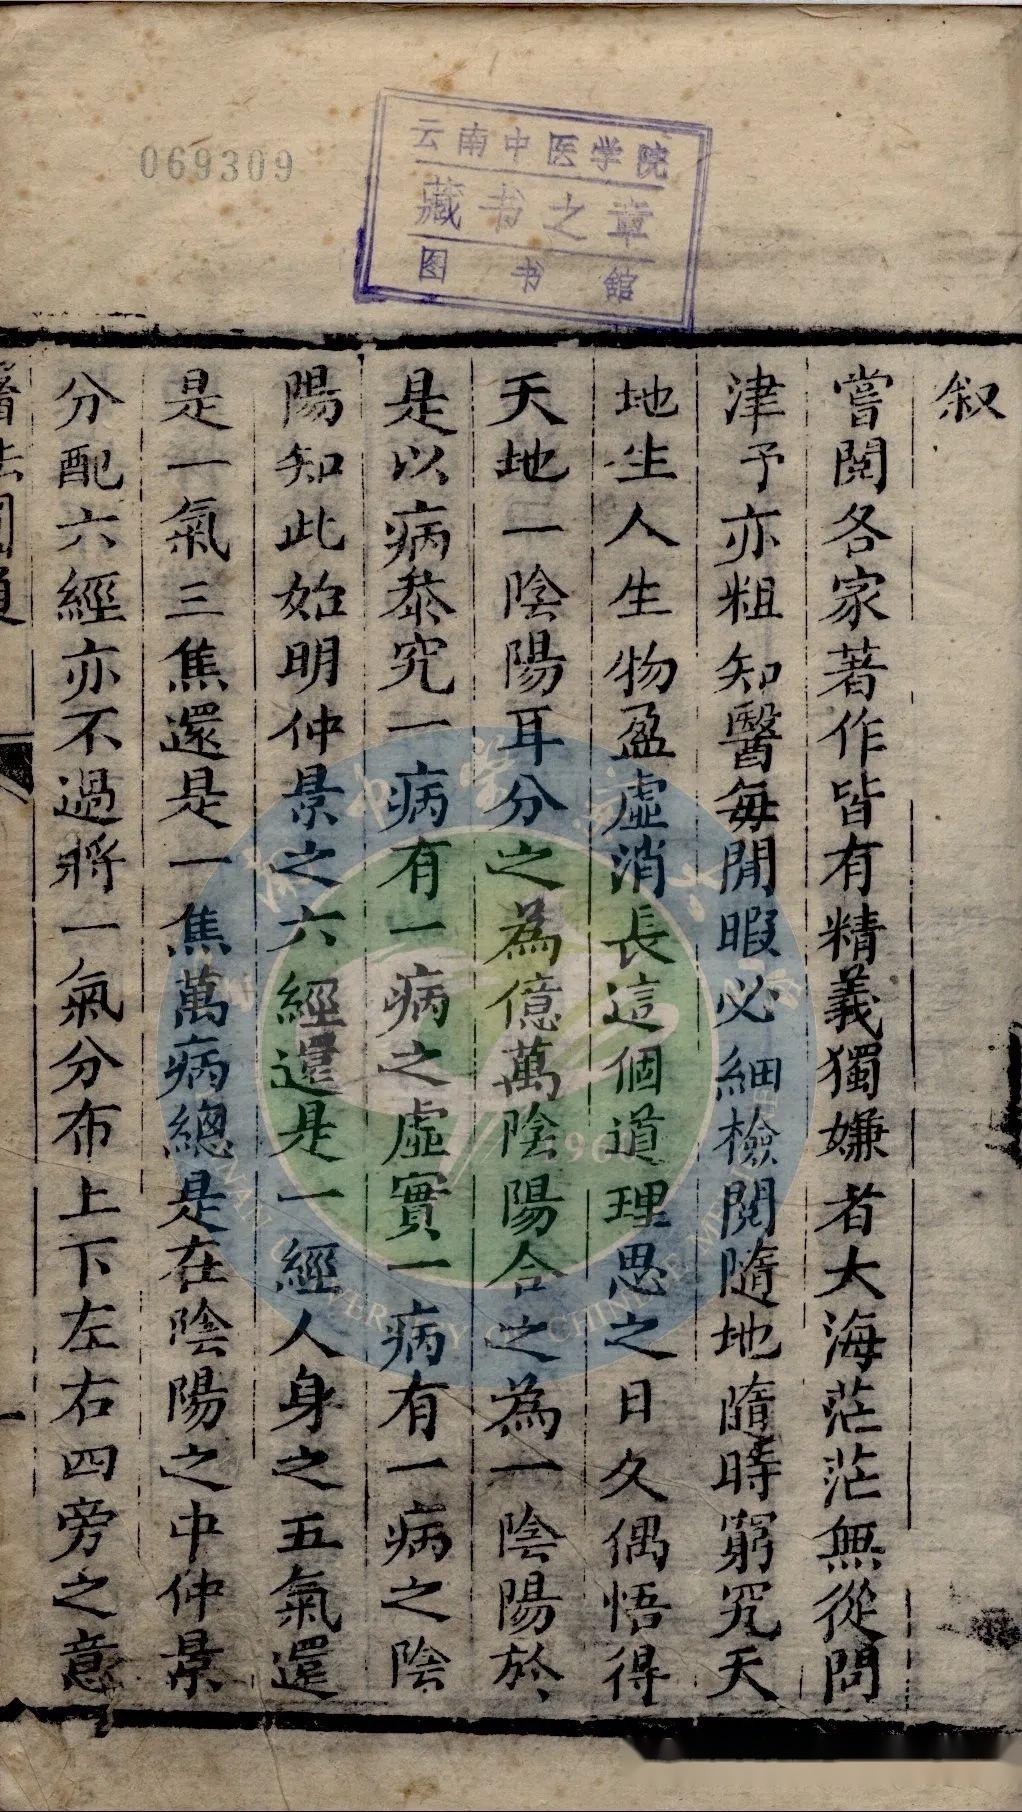 069309
云南中医学院
藏书之章
图书館
叙
嘗閱各家著作皆有精義獨嫌者大海茫茫無從問
津予亦粗知醫每閒暇必細檢閱隨地隨時窮究天
地生人生物盈虛消長這個道理思之日久偶悟得
天地一陰陽耳分之為億萬陰陽合之為一陰陽於
是以病叅究一病有一病之虛實一病有一病之陰
陽知此始明仲景之六經還是一經人身之五氣還
是一氣三焦還是一焦萬病總是在陰陽之中仲景
分配六經亦不過將一氣分布上下左右四旁之意
醫法圓通
一
1960
UNIVERSITY OF CHINESE MEDICINE